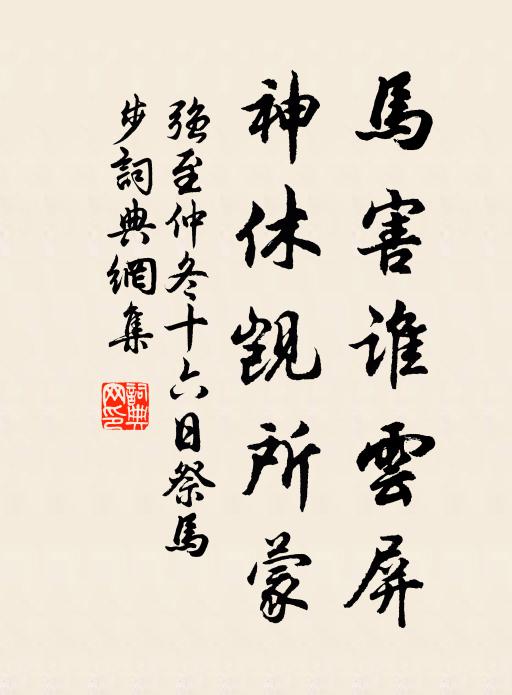 馬害誰雲屏
神休覬所蒙
強至仲冬十六日祭馬
步詞典網集
詞典
网印